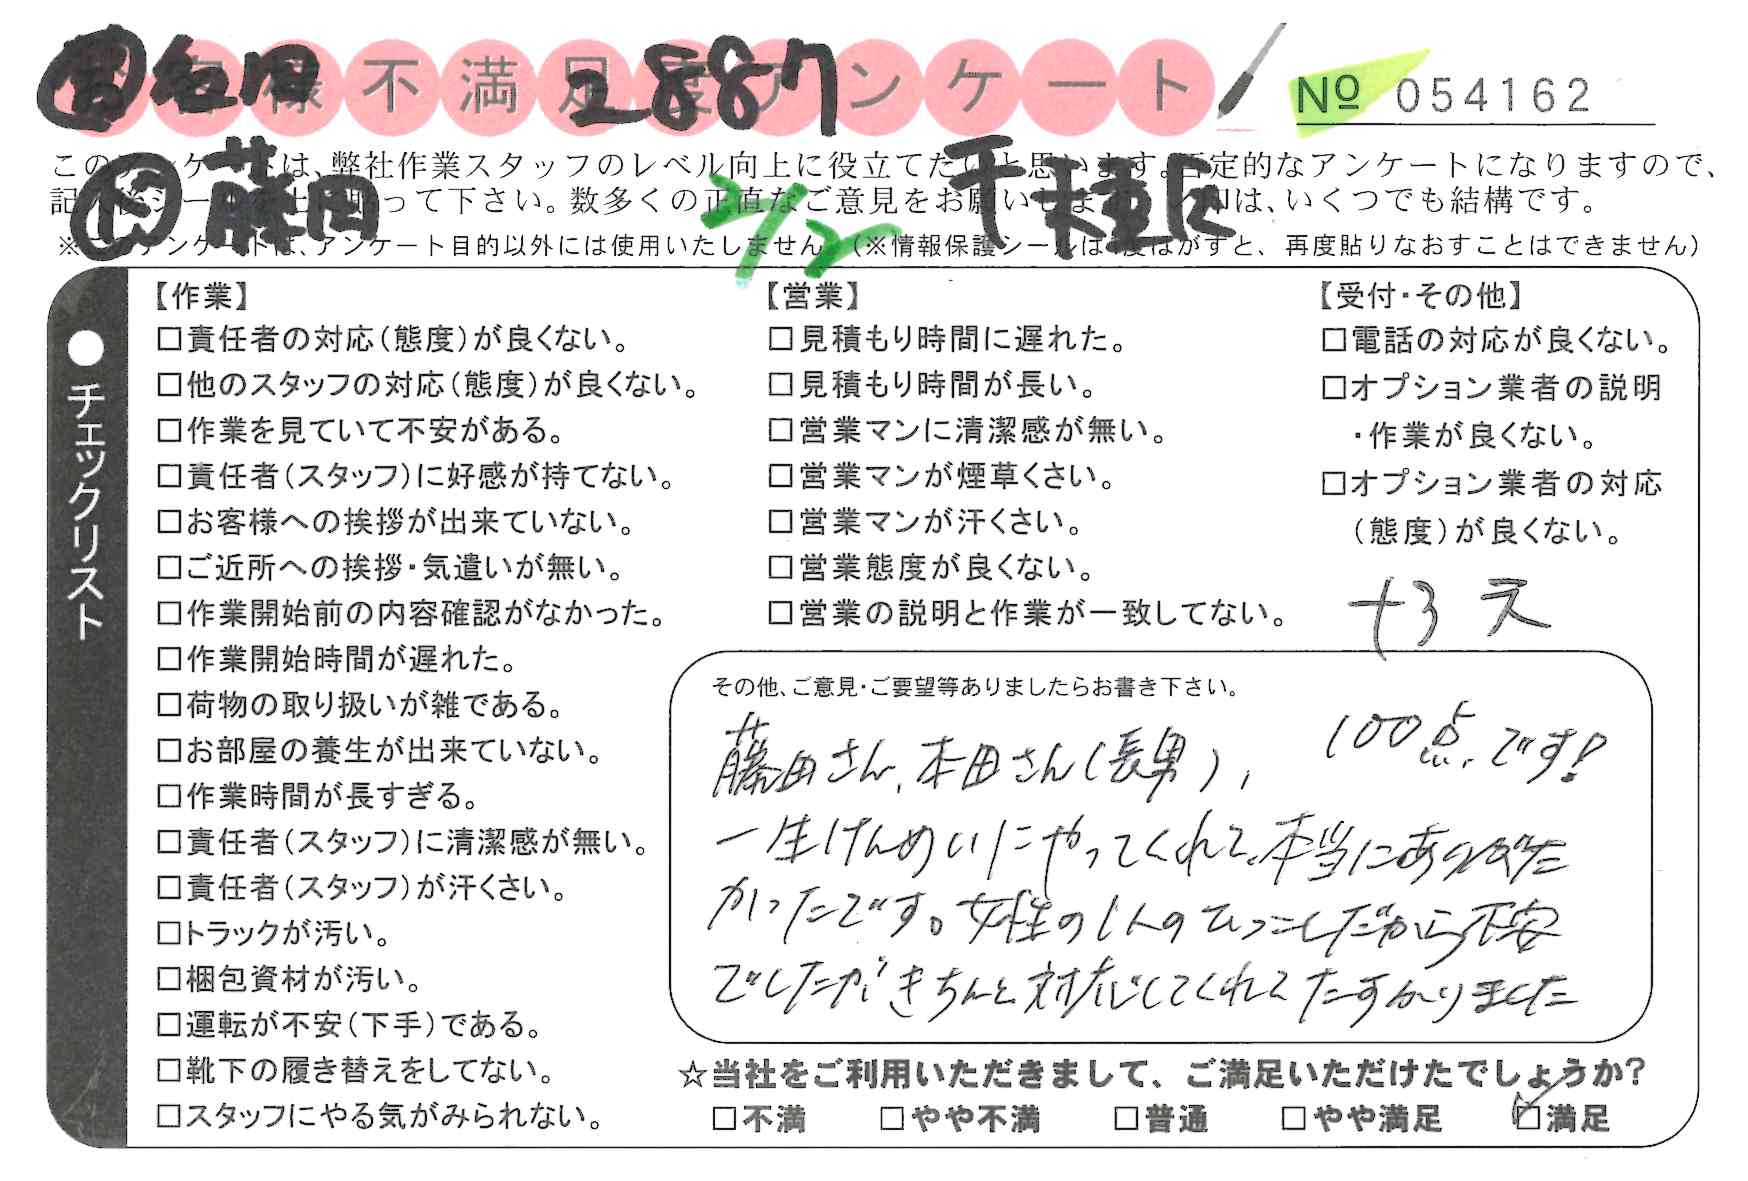 お客様不満足度アンケート
名古
2887
No 054162
藤田
千種区
2/12
このアンケートは、弊社作業スタッフのレベル向上に役立てたいと思います。否定的なアンケートになりますので、
記入後シールを上に貼って下さい。数多くの正直なご意見をお願いします。レ印は、いくつでも結構です。
※アンケートは、アンケート目的以外には使用いたしません。(※情報保護シールは1度はがすと、再度貼りなおすことはできません)
●チェックリスト
【作業】
□責任者の対応(態度)が良くない。
□他のスタッフの対応(態度)が良くない。
□作業を見ていて不安がある。
□責任者(スタッフ)に好感が持てない。
□お客様への挨拶が出来ていない。
□ご近所への挨拶・気遣いが無い。
□作業開始前の内容確認がなかった。
□作業開始時間が遅れた。
□荷物の取り扱いが雑である。
□お部屋の養生が出来ていない。
□作業時間が長すぎる。
□責任者(スタッフ)に清潔感が無い。
□責任者(スタッフ)が汗くさい。
□トラックが汚い。
□梱包資材が汚い。
□運転が不安(下手)である。
□靴下の履き替えをしてない。
□スタッフにやる気がみられない。
【営業】
□見積もり時間に遅れた。
□見積もり時間が長い。
□営業マンに清潔感が無い。
□営業マンが煙草くさい。
□営業マンが汗くさい。
□営業態度が良くない。
□営業の説明と作業が一致してない。
【受付・その他】
□電話の対応が良くない。
□オプション業者の説明
・作業が良くない。
□オプション業者の対応
(態度)が良くない。
その他、ご意見・ご要望等ありましたらお書き下さい。
藤田さん、本田さん(長男)、 100点です!
一生けんめいにやってくれて、本当にありがた
かったです。女性の1人のひっこしだから不安
でしたが、きちんと対応してくれてたすかりました
☆当社をご利用いただきまして、ご満足いただけたでしょうか?
□不満 □やや不満 □普通 □やや満足 ☑満足